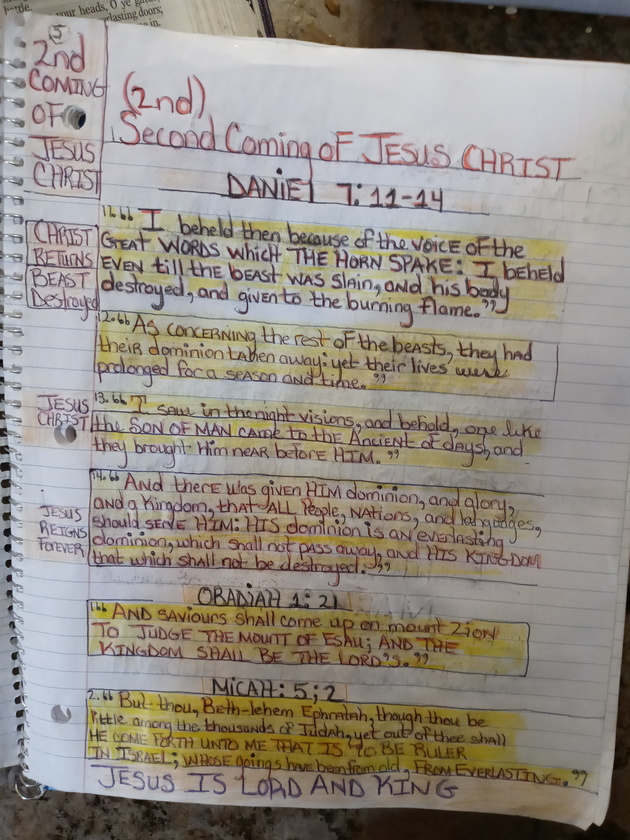 your heads, O ye gates,
lasting doors;
in.
5
2nd
COMING
OF
JESUS
CHRIST
(2nd)
Second Coming OF JESUS CHRIST
DANIEL 7:11-14
CHRIST
RETURNS
BEAST
Destroyed
11. "I beheld then because of the voice of the
GREAT WORDS which THE HORN SPAKE: I beheld
EVEN till the BEAST WAS Slain, and his body
destroyed, and given to the burning flame."
12. "As CONCERNING the rest of the beasts, they had
their dominion taken away: yet their lives were
prolonged for a season and time."
JESUS
CHRIST
13. "I saw in the night visions, and behold, one like
the SON OF MAN came to the Ancient of days, and
they brought Him near before HIM."
JESUS
REIGNS
FOREVER
14. "And there was given HIM dominion, and glory,
and a Kingdom, that ALL People, NATIONS, and languages,
should SERVE HIM: HIS dominion is AN everlasting
dominion, which shall not pass away, and HIS KINGDOM
that which shall not be destroyed:"
OBADIAH 1:21
"AND SAVIOURS shall come up on mount Zion
TO JUDGE THE MOUNT OF Esau; AND THE
KINGDOM SHALL BE THE LORD'S."
MICAH: 5;2
2. "But thou, Beth-lehem Ephratah, though thou be
little among the thousands of Judah, yet out of thee shall
HE COME FORTH UNTO ME THAT IS TO BE RULER
IN ISRAEL; WHOSE goings have been from old, FROM EVERLASTING."
JESUS IS LORD AND KING